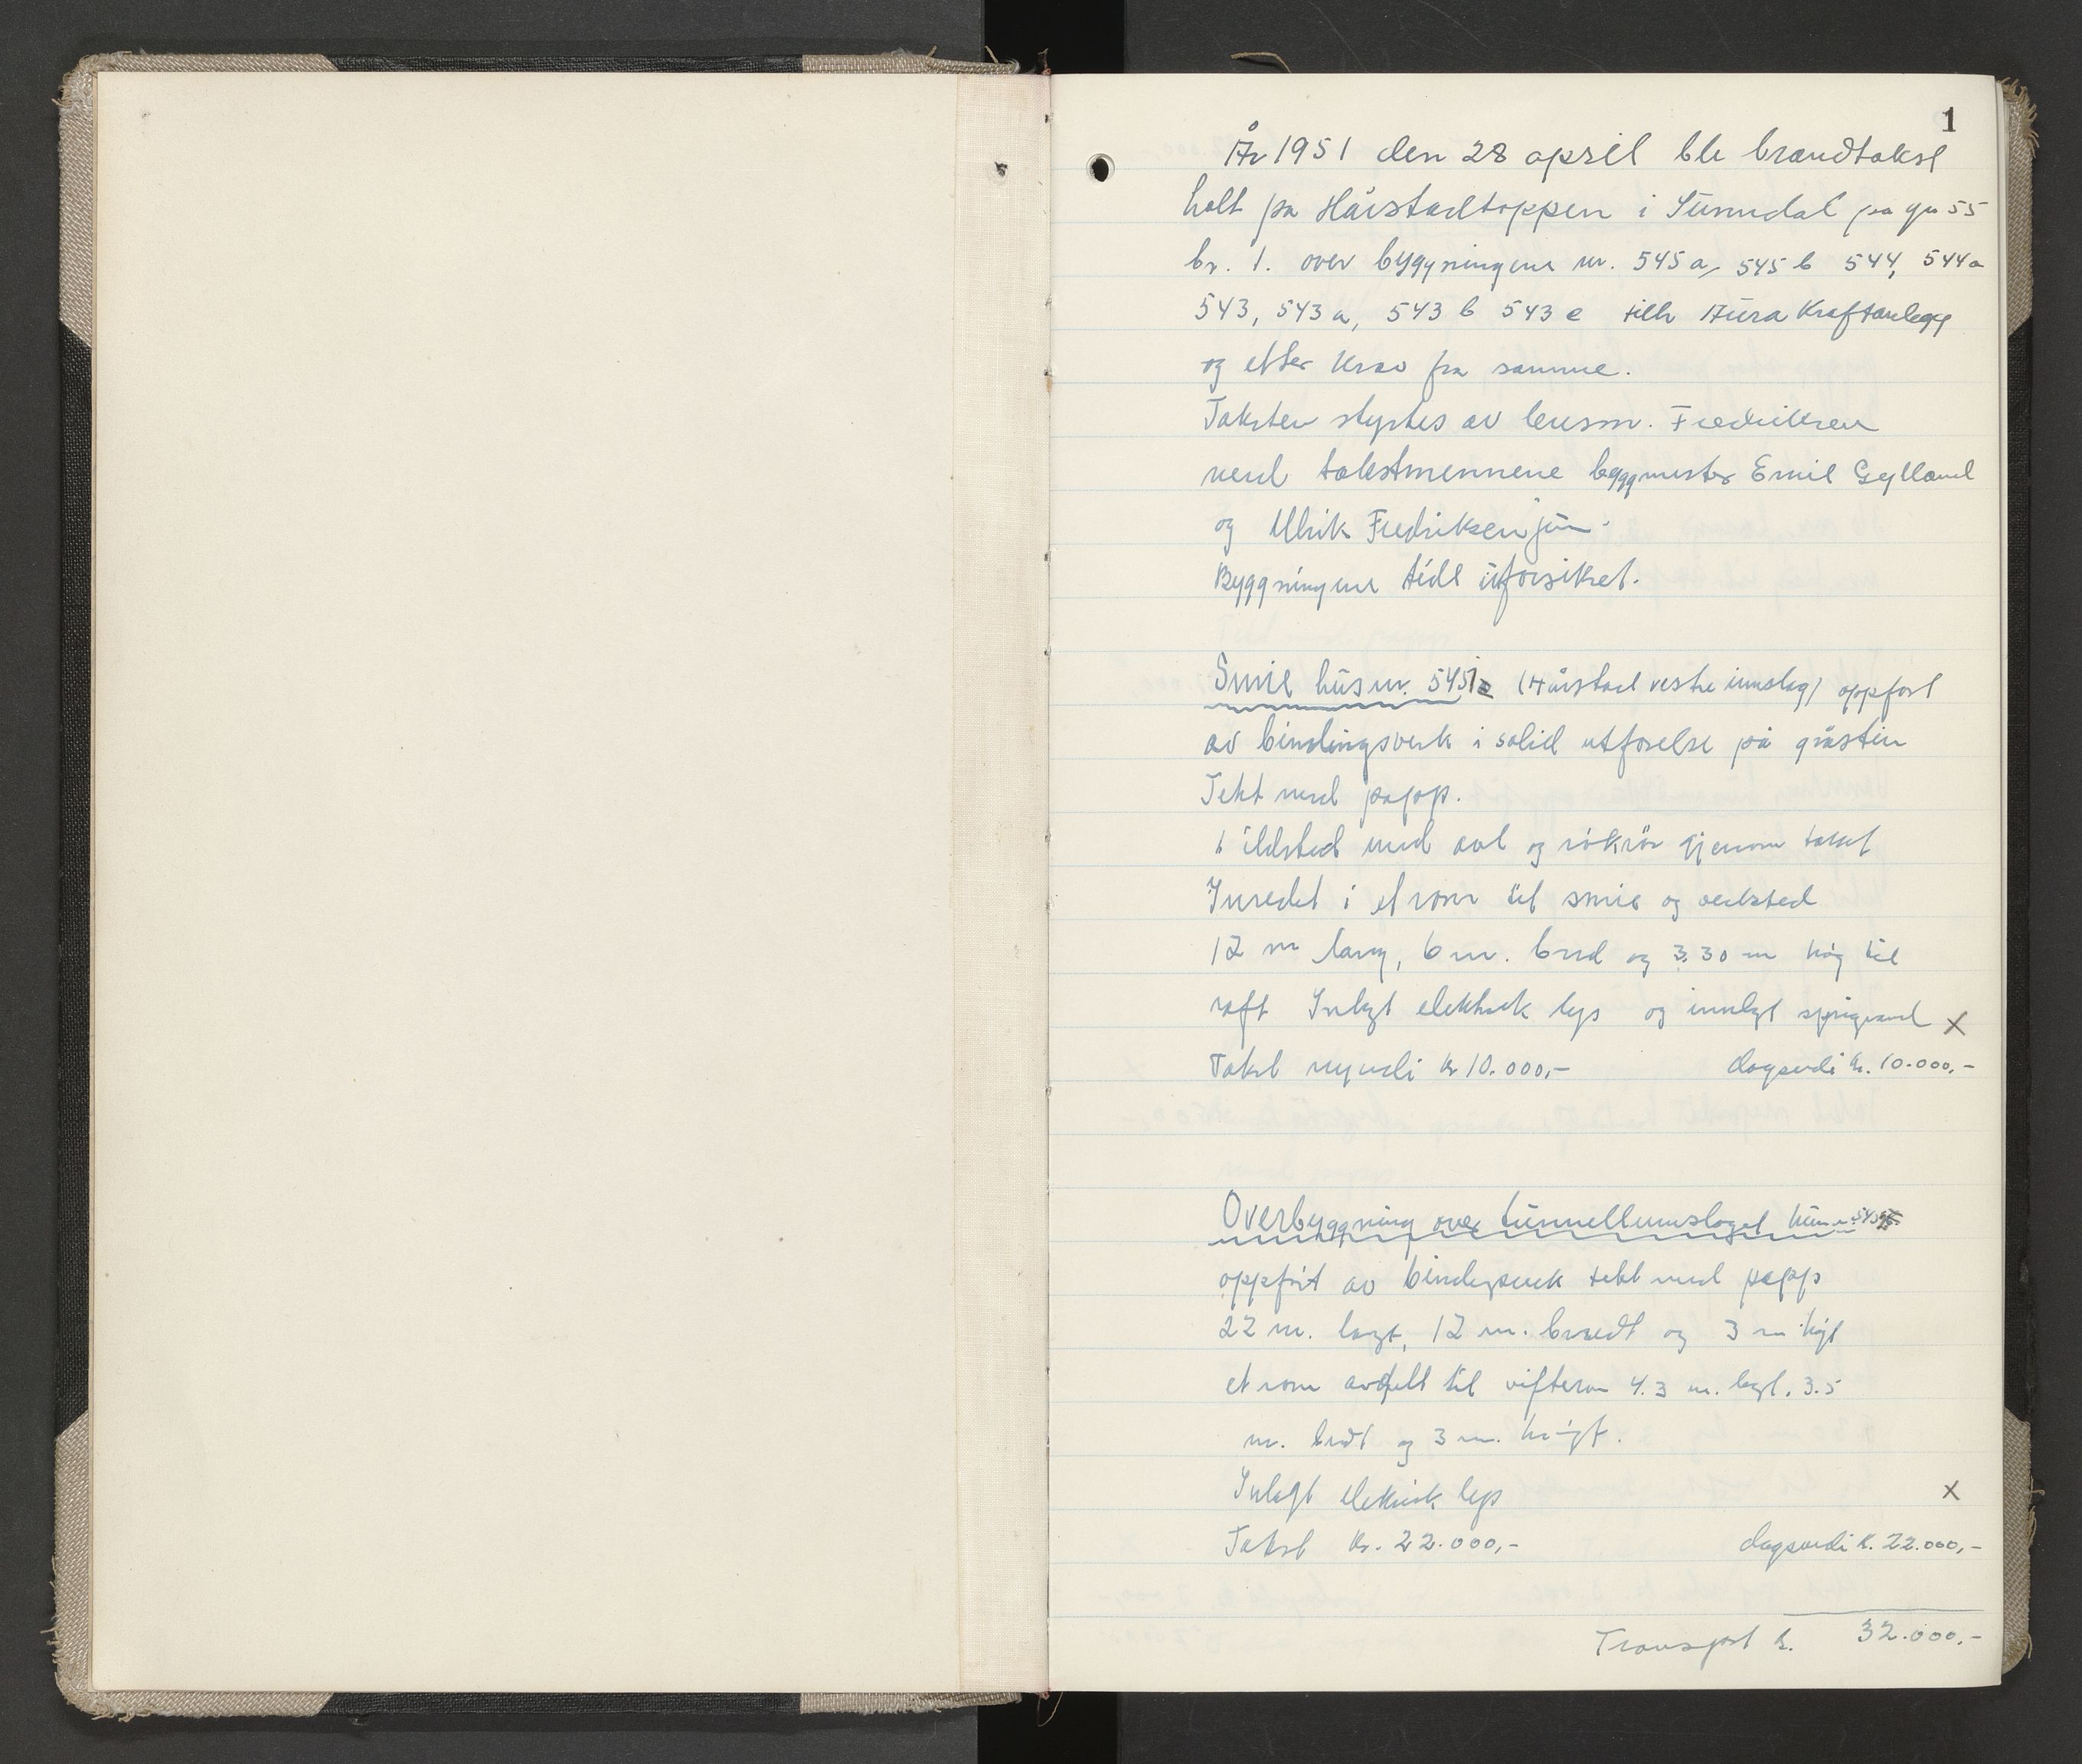 1
År 1951 den 28 april ble brandtakst
holt på Hårstadtoppen i Sunndal på gn 55
br. 1. over byggningene nr. 545 a, 545 b 544, 544 a
543, 543 a, 543 b 543 c tilh Aura Kraftanlegg
og etter krav fra samme.
Taksten styrtes av lensm. Fredriksen
med takstmennene byggmester Emil Gylland
og Ulrik Fredriksen jun.
Byggningene tidl uforsikret.
Smie hus nr. 545 a (Hårstad vestre innslag) oppført
av bindingsverk i solid utførelse på gråstein
Tekt med papp.
1 ildsted med avl og rökrör gjenom taket
Inredet i et rom til smie og verksted
12 m lang, 6 m. bred og 3.30 m høg til
raft Inlagt elektrisk lys og innlagt springvand X
Takst nyverdi kr 10.000,- dagsverdi kr. 10.000,-
Overbyggning over tunnellinnslaget hus nr. 545 b
oppført av bindingsverk tekt med papp
22 m. langt, 12 m. bredt og 3 m högt
et rom avdelt til vifterom 4.3 m. langt, 3.5
m. bredt og 3 m. högt.
Inlagt elektrisk lys X
Takst kr. 22.000,- dagsverdi k. 22.000,-
Transport k. 32.000,-